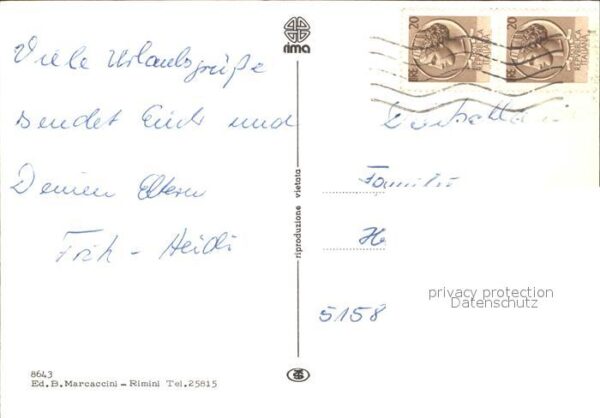 Viele Urlaubsgrüße
sendet Euch und
Deinen Eltern
Heidi
rima
20 20
REPUBBLICA ITALIANA
riproduzione vietata
Familie
5158
privacy protection
Datenschutz
8643
Ed. B. Marcaccini - Rimini Tel. 25815